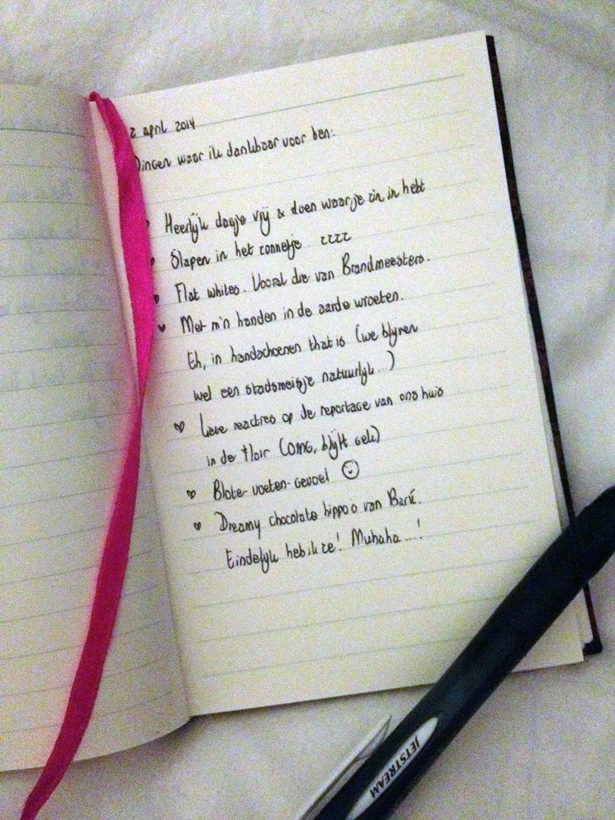 2 april 2014
Dingen waar ik dankbaar voor ben:
Heerlijk dagje vrij & doen waar je zin in hebt
Slapen in het zonnetje zzzz
Flat whites. Vooral die van Brandmeesters.
Met m'n handen in de aarde wroeten.
Eh, in handschoenen that is (we blijven
wel een stadsmeisje natuurlijk...)
Lieve reacties op de reportage van ons huis
in de Flair (OMG, blijft gek)
Blote-voeten-gevoel
Dreamy chocolate hippo's van Barú.
Eindelijk heb ik ze! Muhaha...!
JETSTREAM